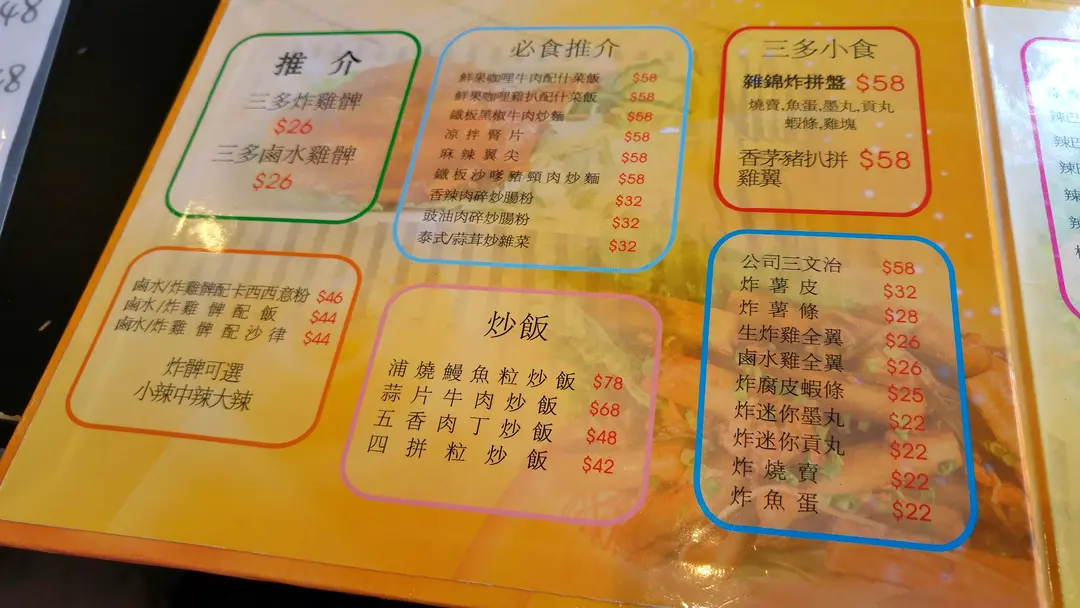 48
8
推 介
三多炸雞髀
$26
三多鹵水雞髀
$26
必食推介
鮮果咖哩牛肉配什菜飯 $58
鮮果咖哩雞扒配什菜飯 $58
鐵板黑椒牛肉炒麵 $58
凉拌腎片 $58
麻辣翼尖 $58
鐵板沙嗲豬頸肉炒麵 $58
香辣肉碎炒腸粉 $32
豉油肉碎炒腸粉 $32
泰式/蒜茸炒雜菜 $32
三多小食
雜錦炸拼盤 $58
燒賣,魚蛋,墨丸,貢丸
蝦條,雞塊
香茅豬扒拼 $58
雞翼
鹵水/炸雞髀配卡西西意粉 $46
鹵水/炸雞髀配飯 $44
鹵水/炸雞髀配沙律 $44
炸髀可選
小辣中辣大辣
炒飯
浦燒鰻魚粒炒飯 $78
蒜片牛肉炒飯 $68
五香肉丁炒飯 $48
四拼粒炒飯 $42
公司三文治 $58
炸薯皮 $32
炸薯條 $28
生炸雞全翼 $26
鹵水雞全翼 $26
炸腐皮蝦條 $25
炸迷你墨丸 $22
炸迷你貢丸 $22
炸燒賣 $22
炸魚蛋 $22
辣巴
辣巴
辣
辣
辣